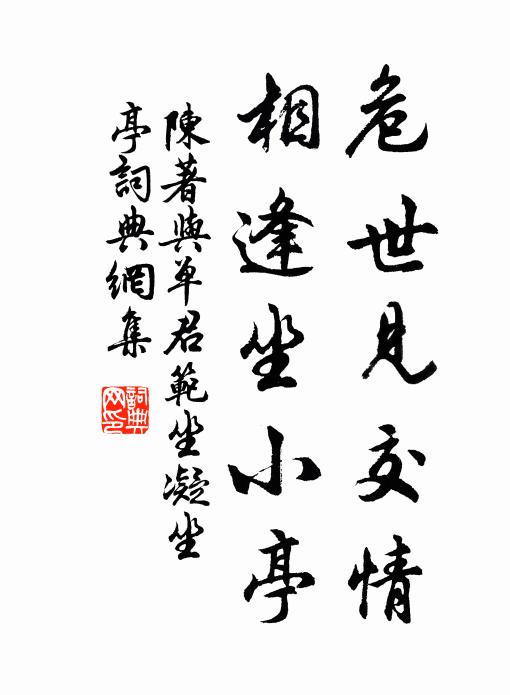 危世見交情
相逢坐小亭
陳著與單君範坐凝坐
亭詞典網集
詞典網印